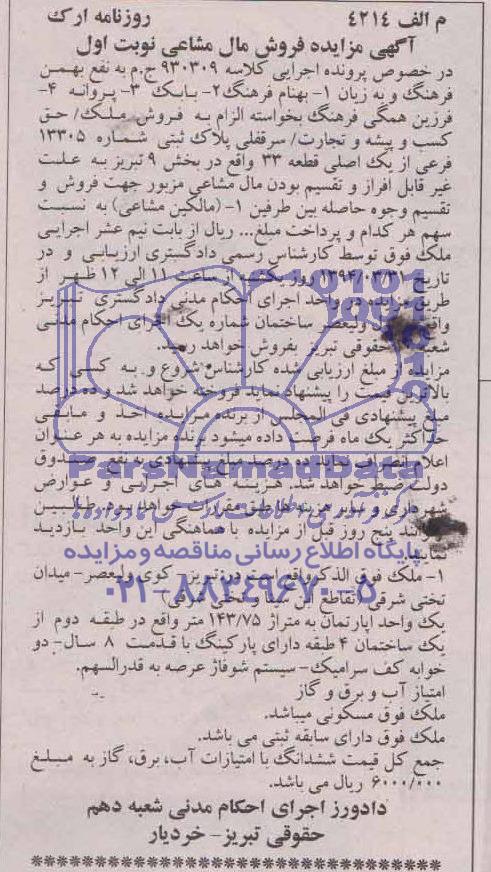 م الف ۴۲۱۴ روزنامه ارک
آگهی مزایده فروش مال مشاعی نوبت اول
در خصوص پرونده اجرایی کلاسه ۹۳۰۳۰۹ ج.م به نفع بهمن
فرهنگ و به زیان ۱- بهنام فرهنگ ۲- بابک ۳- پروانه ۴-
فرزین همگی فرهنگ بخواسته الزام به فروش ملک/ حق
کسب و پیشه و تجارت/ سرقفلی پلاک ثبتی شماره ۱۳۳۰۵
فرعی از یک اصلی قطعه ۳۳ واقع در بخش ۹ تبریز به علت
غیر قابل افراز و تقسیم بودن مال مشاعی مزبور جهت فروش و
تقسیم وجوه حاصله بین طرفین ۱- (مالکین مشاعی) به نسبت
سهم هر کدام و پرداخت مبلغ... ریال از بابت نیم عشر اجرایی
ملک فوق توسط کارشناس رسمی دادگستری ارزیابی و در
تاریخ ۱۳۹۴/۰۳/۳۱ روز یکشنبه از ساعت ۱۱ الی ۱۲ ظهر از
طریق مزایده در واحد اجرای احکام مدنی دادگستری تبریز
واقع ولیعصر ساختمان شماره یک اجرای احکام مدنی
شعبه حقوقی تبریز بفروش خواهد رسید.
مزایده از مبلغ ارزیابی شده کارشناس شروع و به کسی که
بالاترین قیمت را پیشنهاد نماید فروخته خواهد شد و ده درصد
مبلغ پیشنهادی فی المجلس از برنده مزایده اخذ و مابقی
حداکثر یک ماه فرصت داده میشود برنده مزایده به هر عنوان
اعلام انصراف نماید ده درصد مبلغ پیشنهادی به نفع صندوق
دولت ضبط خواهد شد. هزینه های اجرایی و عوارض
شهرداری و سایر هزینه ها طبق مقررات خواهد بود. طالبین
میتوانند پنج روز قبل از مزایده با هماهنگی این واحد بازدید
نمایند.
۱- ملک فوق الذکر واقع است در تبریز- کوی ولیعصر- میدان
تختی شرقی (تقاطع ابن سینا و تختی شرقی)
یک واحد آپارتمان به متراژ ۱۴۳/۷۵ متر واقع در طبقه دوم از
یک ساختمان ۴ طبقه دارای پارکینگ با قدمت ۸ سال- دو
خوابه کف سرامیک- سیستم شوفاژ عرصه به قدرالسهم.
امتیاز آب و برق و گاز
ملک فوق مسکونی میباشد.
ملک فوق دارای سابقه ثبتی می باشد.
جمع کل قیمت ششدانگ با امتیازات آب، برق، گاز به مبلغ
۶۰۰۰/۰۰۰ ریال می باشد.
دادورز اجرای احکام مدنی شعبه دهم
حقوقی تبریز- خردیار
ParsNamadData
پایگاه اطلاع رسانی مناقصه و مزایده
۰۲۱-۸۸۳۴۹۶۷۰-۵